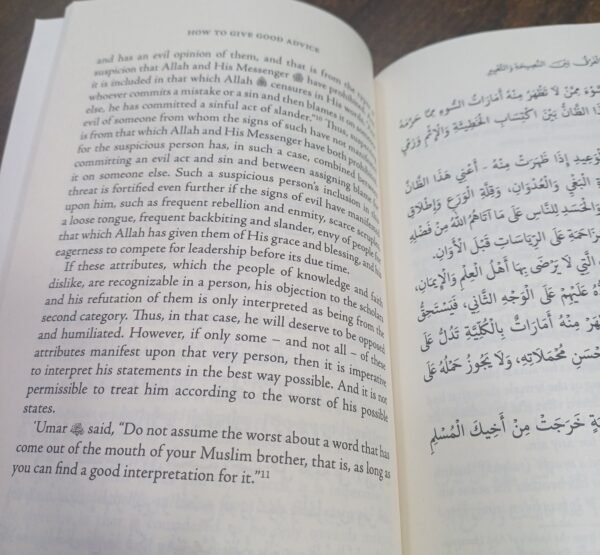 HOW TO GIVE GOOD ADVICE
and has an evil opinion of them, and that is from the
suspicion that Allah and His Messenger ﷺ have
it is included in that which Allah censures in His words
whoever commits a mistake or a sin and then blames it on
else, he has committed a sinful act of slander."10 Thus,
evil of someone from whom the signs of such have not
is from that which Allah and His Messenger have both
for the suspicious person has, in such a case, combined between
committing an evil act and sin and between assigning blame
it on someone else. Such a suspicious person's inclusion in
threat is fortified even further if the signs of evil have
upon him, such as frequent rebellion and enmity, scarce
a loose tongue, frequent backbiting and slander, envy of people for
that which Allah has given them of His grace and blessing, and his
eagerness to compete for leadership before its due time.
If these attributes, which the people of knowledge and faith
dislike, are recognizable in a person, his objection to the scholars
and his refutation of them is only interpreted as being from the
second category. Thus, in that case, he will deserve to be opposed
and humiliated. However, if only some – and not all – of these
attributes manifest upon that very person, then it is imperative
to interpret his statements in the best way possible. And it is not
permissible to treat him according to the worst of his possible
states.
'Umar said, "Do not assume the worst about a word that has
come out of the mouth of your Muslim brother, that is, as long as
you can find a good interpretation for it."11
الفَرْقُ بَيْنَ النَّصِيحَةِ وَالتَّعْيِيرِ
مِمَّنْ لَا يَظْهَرُ مِنْهُ أَمَارَاتُ السُّوءِ مِمَّا حَرَّمَهُ
الظَّانُّ بَيْنَ اكْتِسَابِ الْخَطِيئَةِ وَالْإِثْمِ وَرَمْيِ
إِذَا ظَهَرَتْ مِنْهُ - أَعْنِي هَذَا الظَّانَّ
الْبَغْيِ وَالْعُدْوَانِ، وَقِلَّةِ الْوَرَعِ وَإِطْلَاقِ
وَالْحَسَدِ لِلنَّاسِ عَلَى مَا آتَاهُمُ اللَّهُ مِنْ فَضْلِهِ
عَلَى الرِّيَاسَاتِ قَبْلَ الْأَوَانِ.
الَّتِي لَا يَرْضَى بِهَا أَهْلُ الْعِلْمِ وَالْإِيمَانِ،
عَلَيْهِمْ عَلَى الْوَجْهِ الثَّانِي، فَيَسْتَحِقُّ
مِنْهُ أَمَارَاتٌ بِالْكُلِّيَّةِ تَدُلُّ عَلَى
مُحْمَلَاتِهِ، وَلَا يَجُوزُ حَمْلُهُ عَلَى
خَرَجَتْ مِنْ أَخِيكَ الْمُسْلِمِ